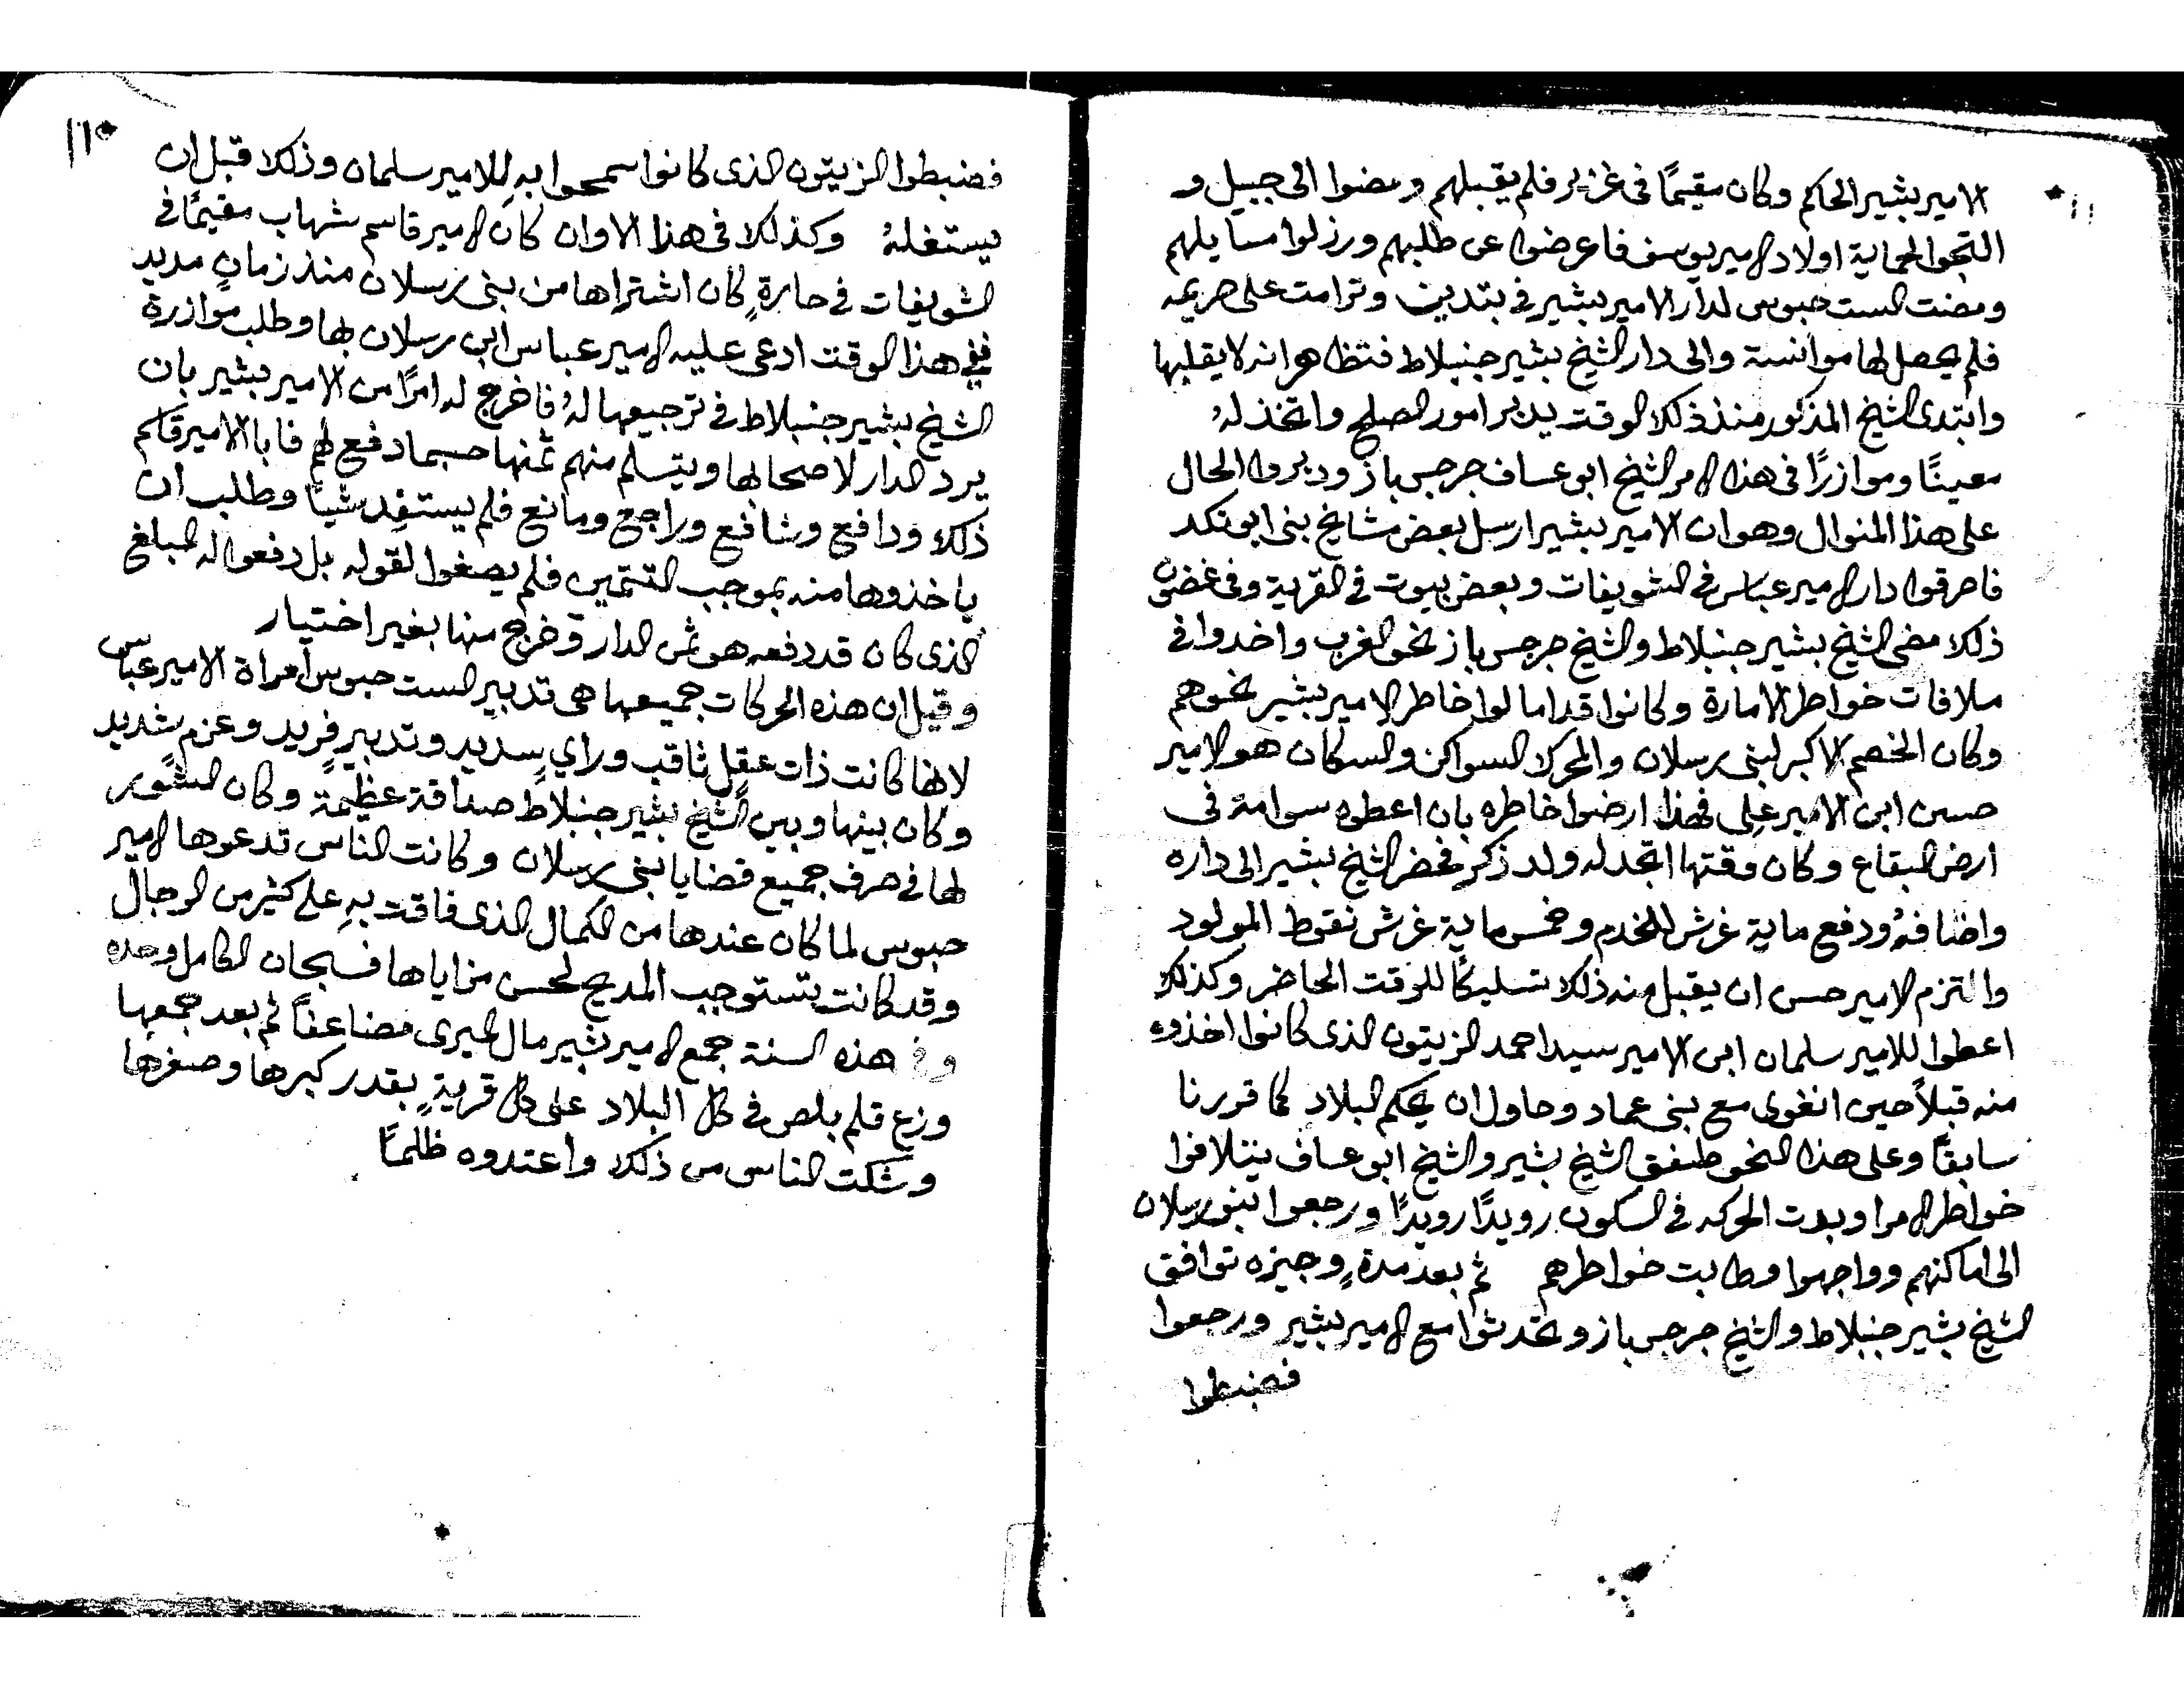 الامير بشير الحاكم وكان مقيمًا فى غزير فلم يقبلهم ومضوا الى جبيل و
التجوا لحماية اولاد الامير يوسف فاعرضوا عن طلبهم ورذلوا مسايلهم
ومضت الست حبوس لدار الامير بشير فى بتدين وترامت على حريمه
فلم يحصل لها موانسة والى دار الشيخ بشير جنبلاط فتظاهر انه لا يقبلها
وابتدى الشيخ المذكور منذ ذلك الوقت يدبر امور الصلح واتخذ لهُ
معينًا وموازرًا فى هذا الامر الشيخ ابو عساف جرجس باز ودبروا الحال
على هذا المنوال وهو ان الامير بشير ارسل بعض مشايخ بنى ابو نكد
فاحرقوا دار الامير عباس فى الشويفات وبعض بيوت فى القرية وفى غضون
ذلك مضى الشيخ بشير جنبلاط والشيخ جرجس باز نحو الغرب واخدوا فى
ملافات خواطر الامارة وكانوا قد امالوا خاطر الامير بشير نحوهم
وكان الخصم الاكبر لبنى رسلان والمحرك السواكن والسكان هو الامير
حسن ابن الامير على فهذا ارضوا خاطره بان اعطوه سوامة فى
ارض البقاع وكان وقتها اتجد له ولد ذكر فحضر الشيخ بشير الى داره
واضافهُ ودفع ماية غرش للخدم وخمس ماية غرش نقوط المولود
والتزم الامير حسن ان يقبل منه ذلك تسليكًا للوقت الحاضر وكذلك
اعطوا للامير سلمان ابن الامير سيد احمد الزيتون الذى كانوا اخذوه
منه قبلاً حين انغوى مع بنى عماد وحاول ان يحكم البلاد كما قررنا
سابقًا وعلى هذا النحو طفق الشيخ بشير والشيخ ابو عساف يتلافوا
خواطر الامرا وبدت الحركه فى السكون رويدًا رويدًا ورجعوا بنو رسلان
الى اماكنهم وواجهوا وطابت خواطرهم ثم بعد مدةٍ وجيزه توافق
الشيخ بشير جنبلاط والشيخ جرجس باز وتحدثوا مع الامير بشير ورجعوا
فضبطوا
فضبطوا الزيتون الذى كانوا سمحوا بهِ للامير سلمان وذلك قبل ان
يستغلهُ وكذلك فى هذا الاوان كان الامير قاسم شهاب مقيمًا فى
الشويفات فى حارةٍ كان اشتراها من بنى رسلان منذ زمانٍ مديد
ففى هذا الوقت ادعى عليه الامير عباس ابن رسلان بها وطلب موازرة
الشيخ بشير جنبلاط فى ترجيعها لهُ فاخرج له امرًا من الامير بشير بان
يرد الدار لاصحابها ويتسلم منهم ثمنها حسبما دفع لهم فابا الامير قاسم
ذلك ودافع وشافع وراجع ومانع فلم يستفِد شيًا وطلب ان
ياخذوها منه بموجب التتمين فلم يصغوا لقوله بل دفعوا له المبلغ
الذى كان قد دفعه هو ثمن الدار وخرج منها بغير اختيار
وقيل ان هذه الحركات جميعها هى تدبير الست حبوس امراة الامير عباس
لانها كانت ذات عقلٍ ثاقب وراي سديد وتدبيرٍ فريد وعزمٍ شديد
وكان بينها وبين الشيخ بشير جنبلاط صداقة عظيمة وكان الشور
لها فى صرف جميع قضايا بنى رسلان وكانت الناس تدعوها الامير
حبوس لما كان عندها من الكمال الذى فاقت بهِ على كثير من الرجال
وقد كانت تستوجب المديح لحسن مزاياها فسبحان الكامل وحده
وفى هذه السنة جمع الامير بشير مال الميرى مضاعفاً ثم بعد جمعها
وزع قلم بلص فى كل البلاد على كل قريةٍ بقدر كبرها وصغرها
وشكت الناس من ذلك واعتدوه ظلمًا